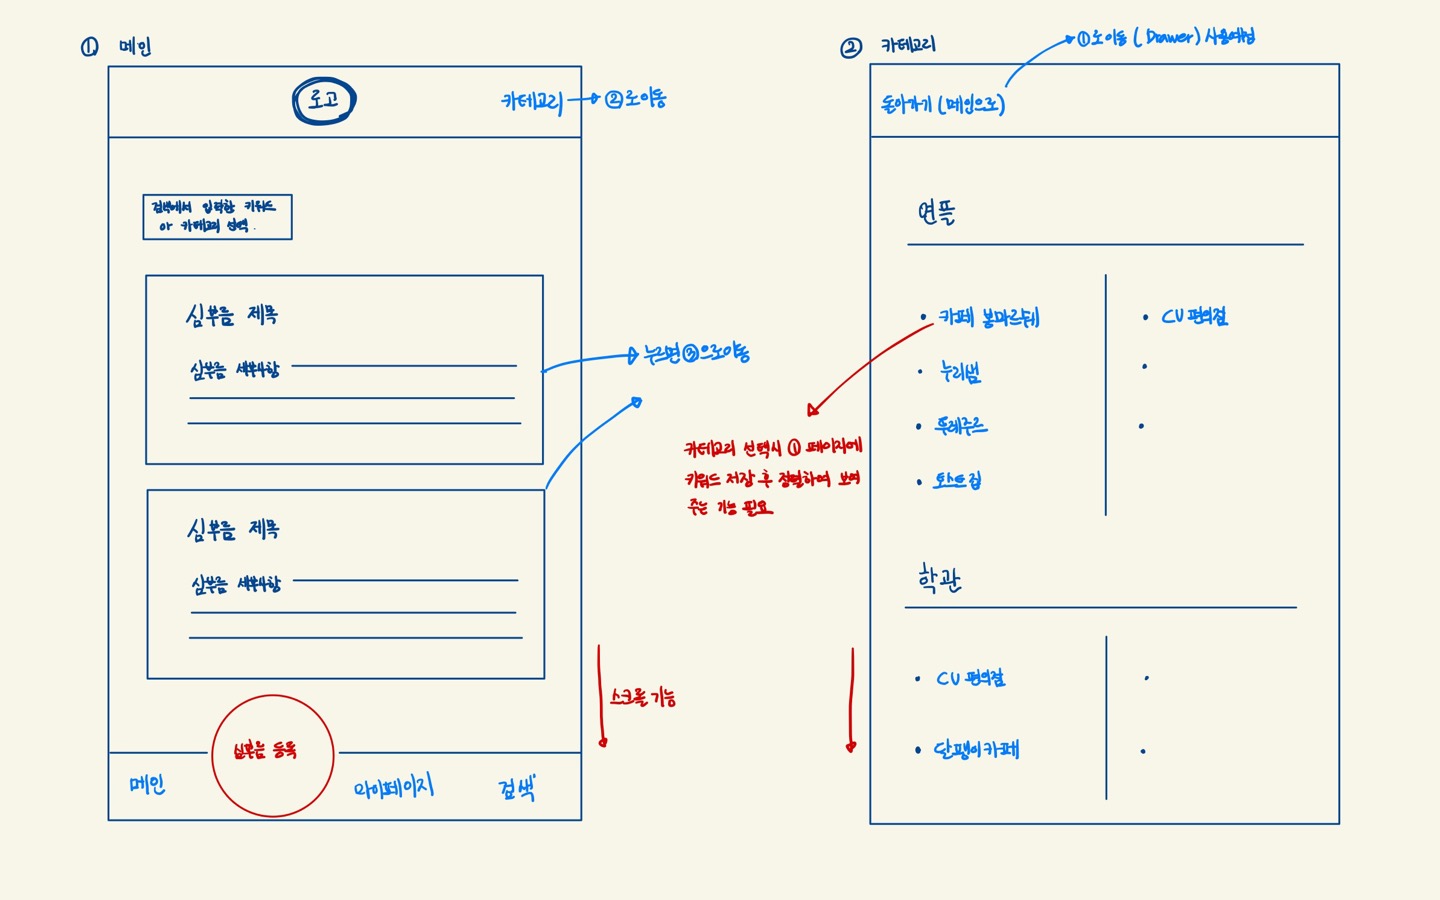 ① 메인
로고
카테고리 → ②로이동
검색에서 입력한 키워드
or 카테고리 선택.
심부름 제목
심부름 세부사항
누르면 ③으로이동
심부름 제목
심부름 세부사항
스크롤 기능
심부름 등록
메인
마이페이지
검색
② 카테고리
①로이동 ( Drawer ) 사용예정
돌아가기 (메인으로)
연플
• 카페 봉마르쉐
• 누리범
• 뚜레주르
• 토스트집
• CU 편의점
카테고리 선택시 ① 페이지에
키워드 저장 후 정렬하여 보여
주는 기능 필요
학관
• CU 편의점
• 달팽이카페